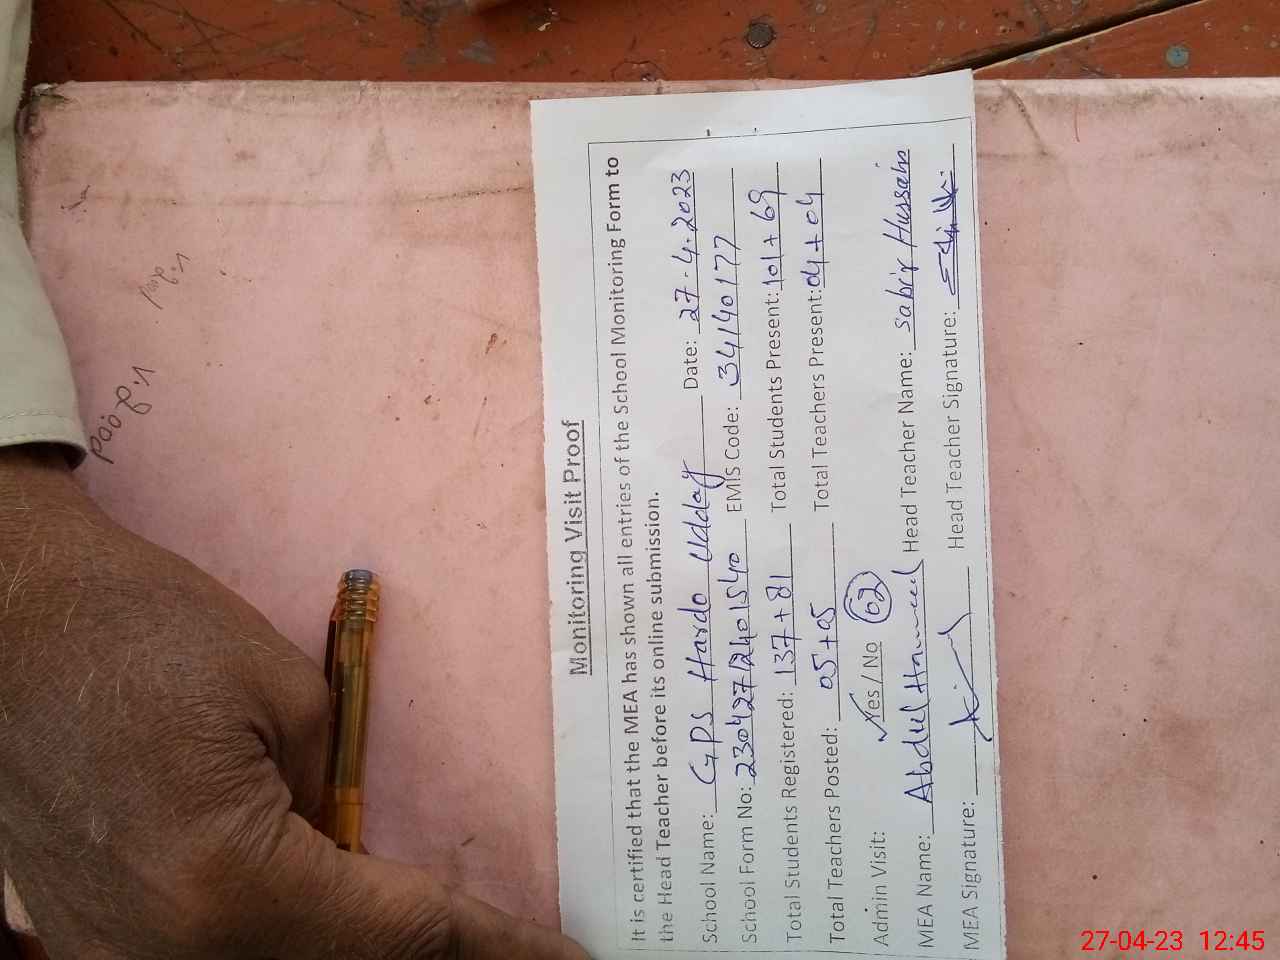 Monitoring Visit Proof
It is certified that the MEA has shown all entries of the School Monitoring Form to
the Head Teacher before its online submission.
School Name: GPS Hardo Udday Date: 27-4-2023
School Form No: 23042712401540 EMIS Code: 34140177
Total Students Registered: 137+81 Total Students Present: 101+69
Total Teachers Posted: 05+05 Total Teachers Present: 04+04
Admin Visit: ✓ Yes / No 02
MEA Name: Abdul Hameed Head Teacher Name: Sabir Hussain
MEA Signature: Head Teacher Signature:
27-04-23 12:45